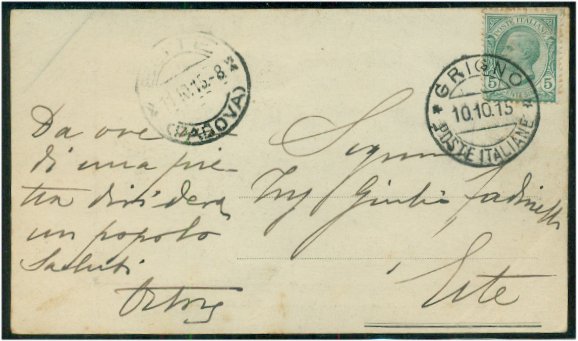 POSTE ITALIANE
5 5
ESTE
11.10.15-8
(PADOVA)
GRIGNO
10.10.15
POSTE ITALIANE
Da ove
di una pie
tra divideva
un popolo
Saluti
Signor
Ing Giulio
Este